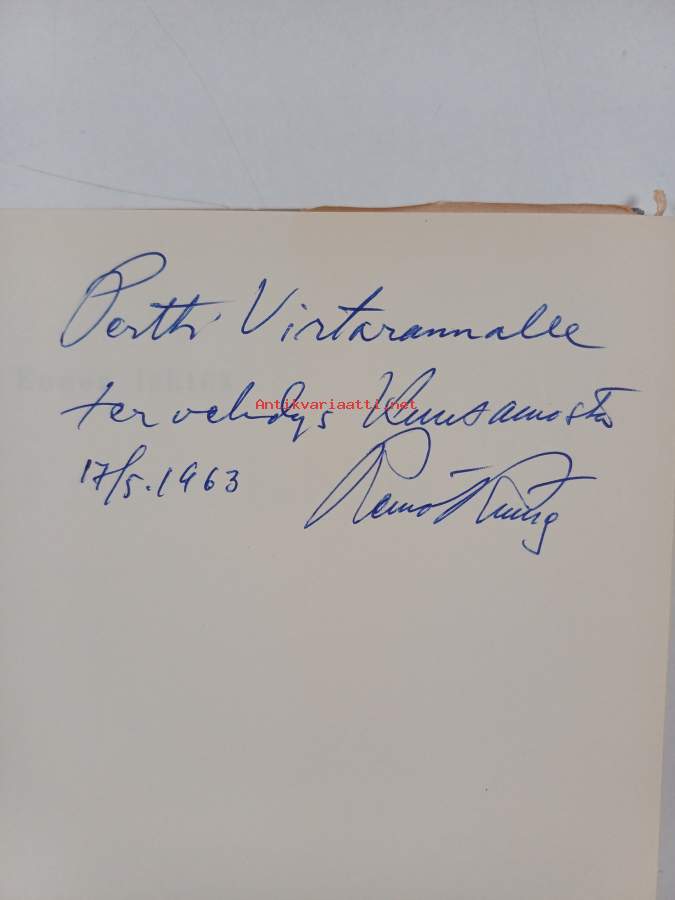 Pertti Virtarannalle
tervehdys Kuusamosta
Antikvariaatti.net
17/5.1963 Reino Rinne